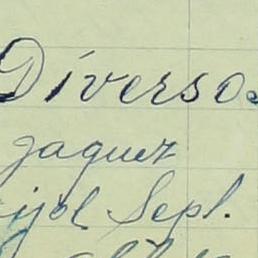 Diversos
jaquez
ijol Sepl.